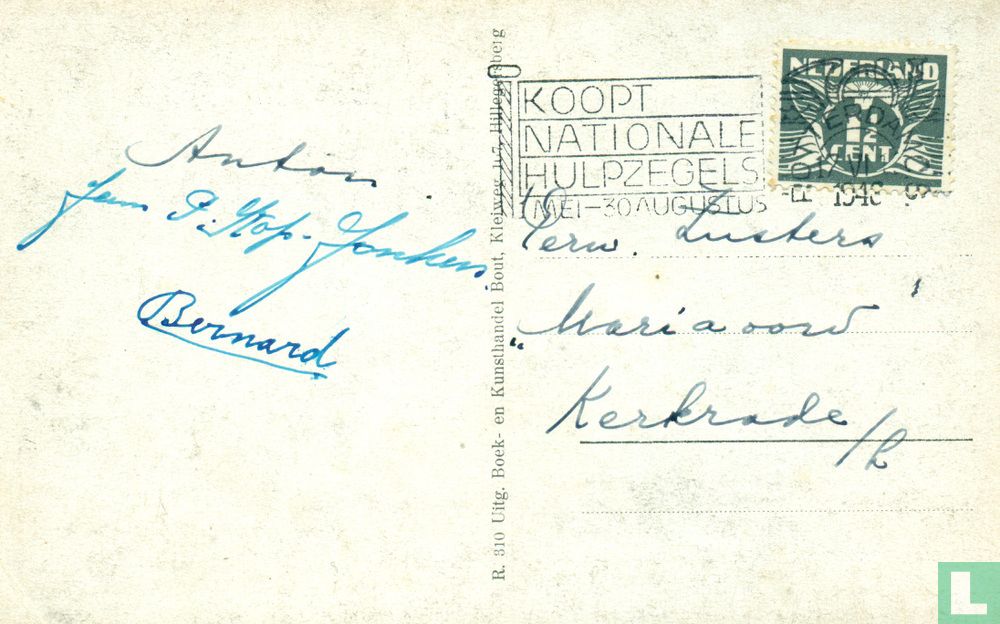 Anton
P. Stop-Jonkers
Bernard
R. 310 Uitg. Boek- en Kunsthandel Bout, Kleiweg 107, Hillegersberg
KOOPT
NATIONALE
HULPZEGELS
MEI-30 AUGUSTUS
NEDERLAND
1½
CENT
VI
1948
Eerw. Zusters
„Mariaoord"
Kerkrade
/L
L